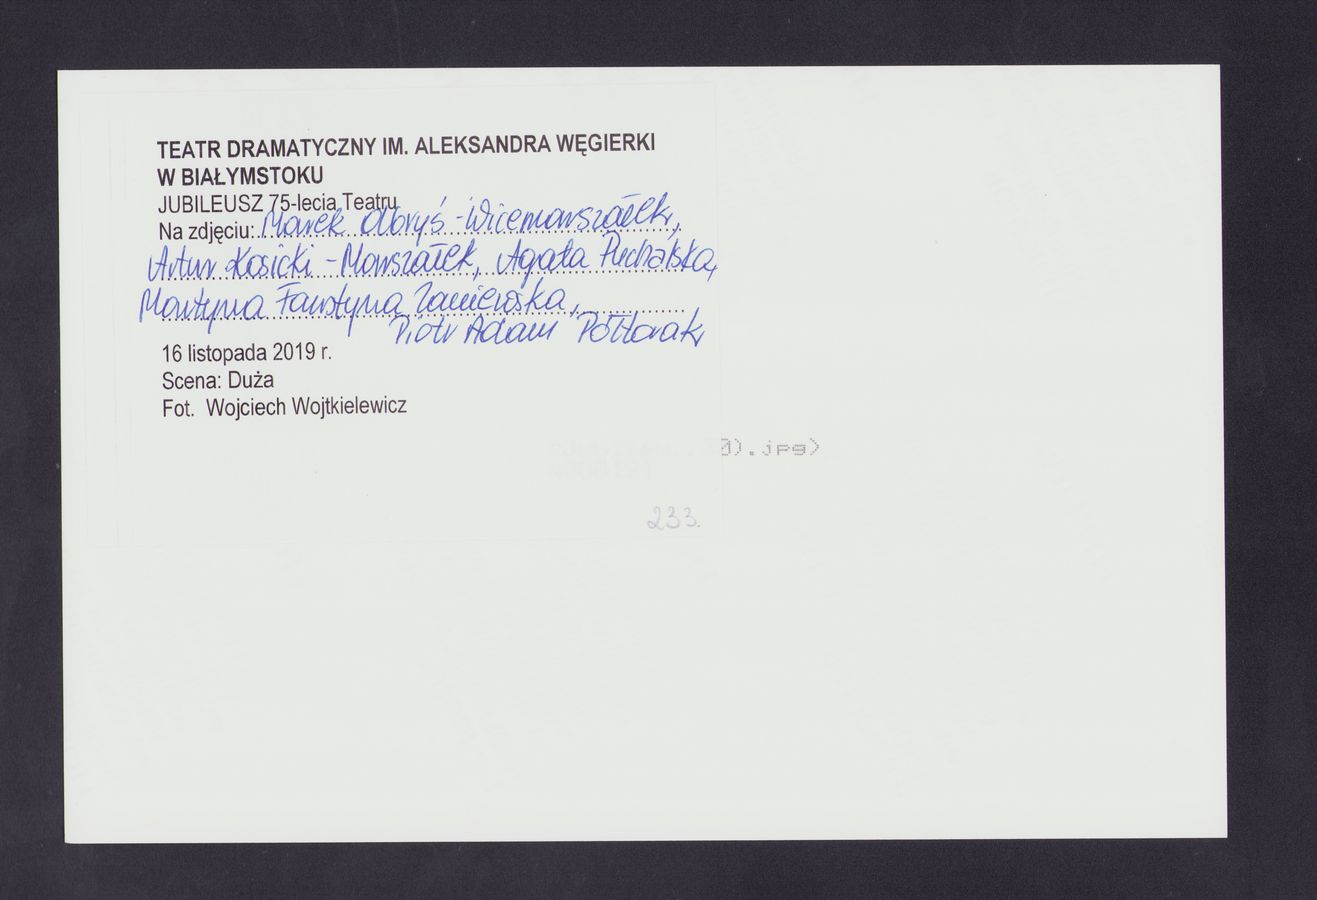 TEATR DRAMATYCZNY IM. ALEKSANDRA WĘGIERKI
W BIAŁYMSTOKU
JUBILEUSZ 75-lecia Teatru
Na zdjęciu: Marek Olbryś - Wicemarszałek,
Artur Kosicki - Marszałek, Agata Puchalska,
Martyna Faustyna Zaniewska,
Piotr Adam Półtorak
16 listopada 2019 r.
Scena: Duża
Fot. Wojciech Wojtkielewicz
0).jpg)
233.